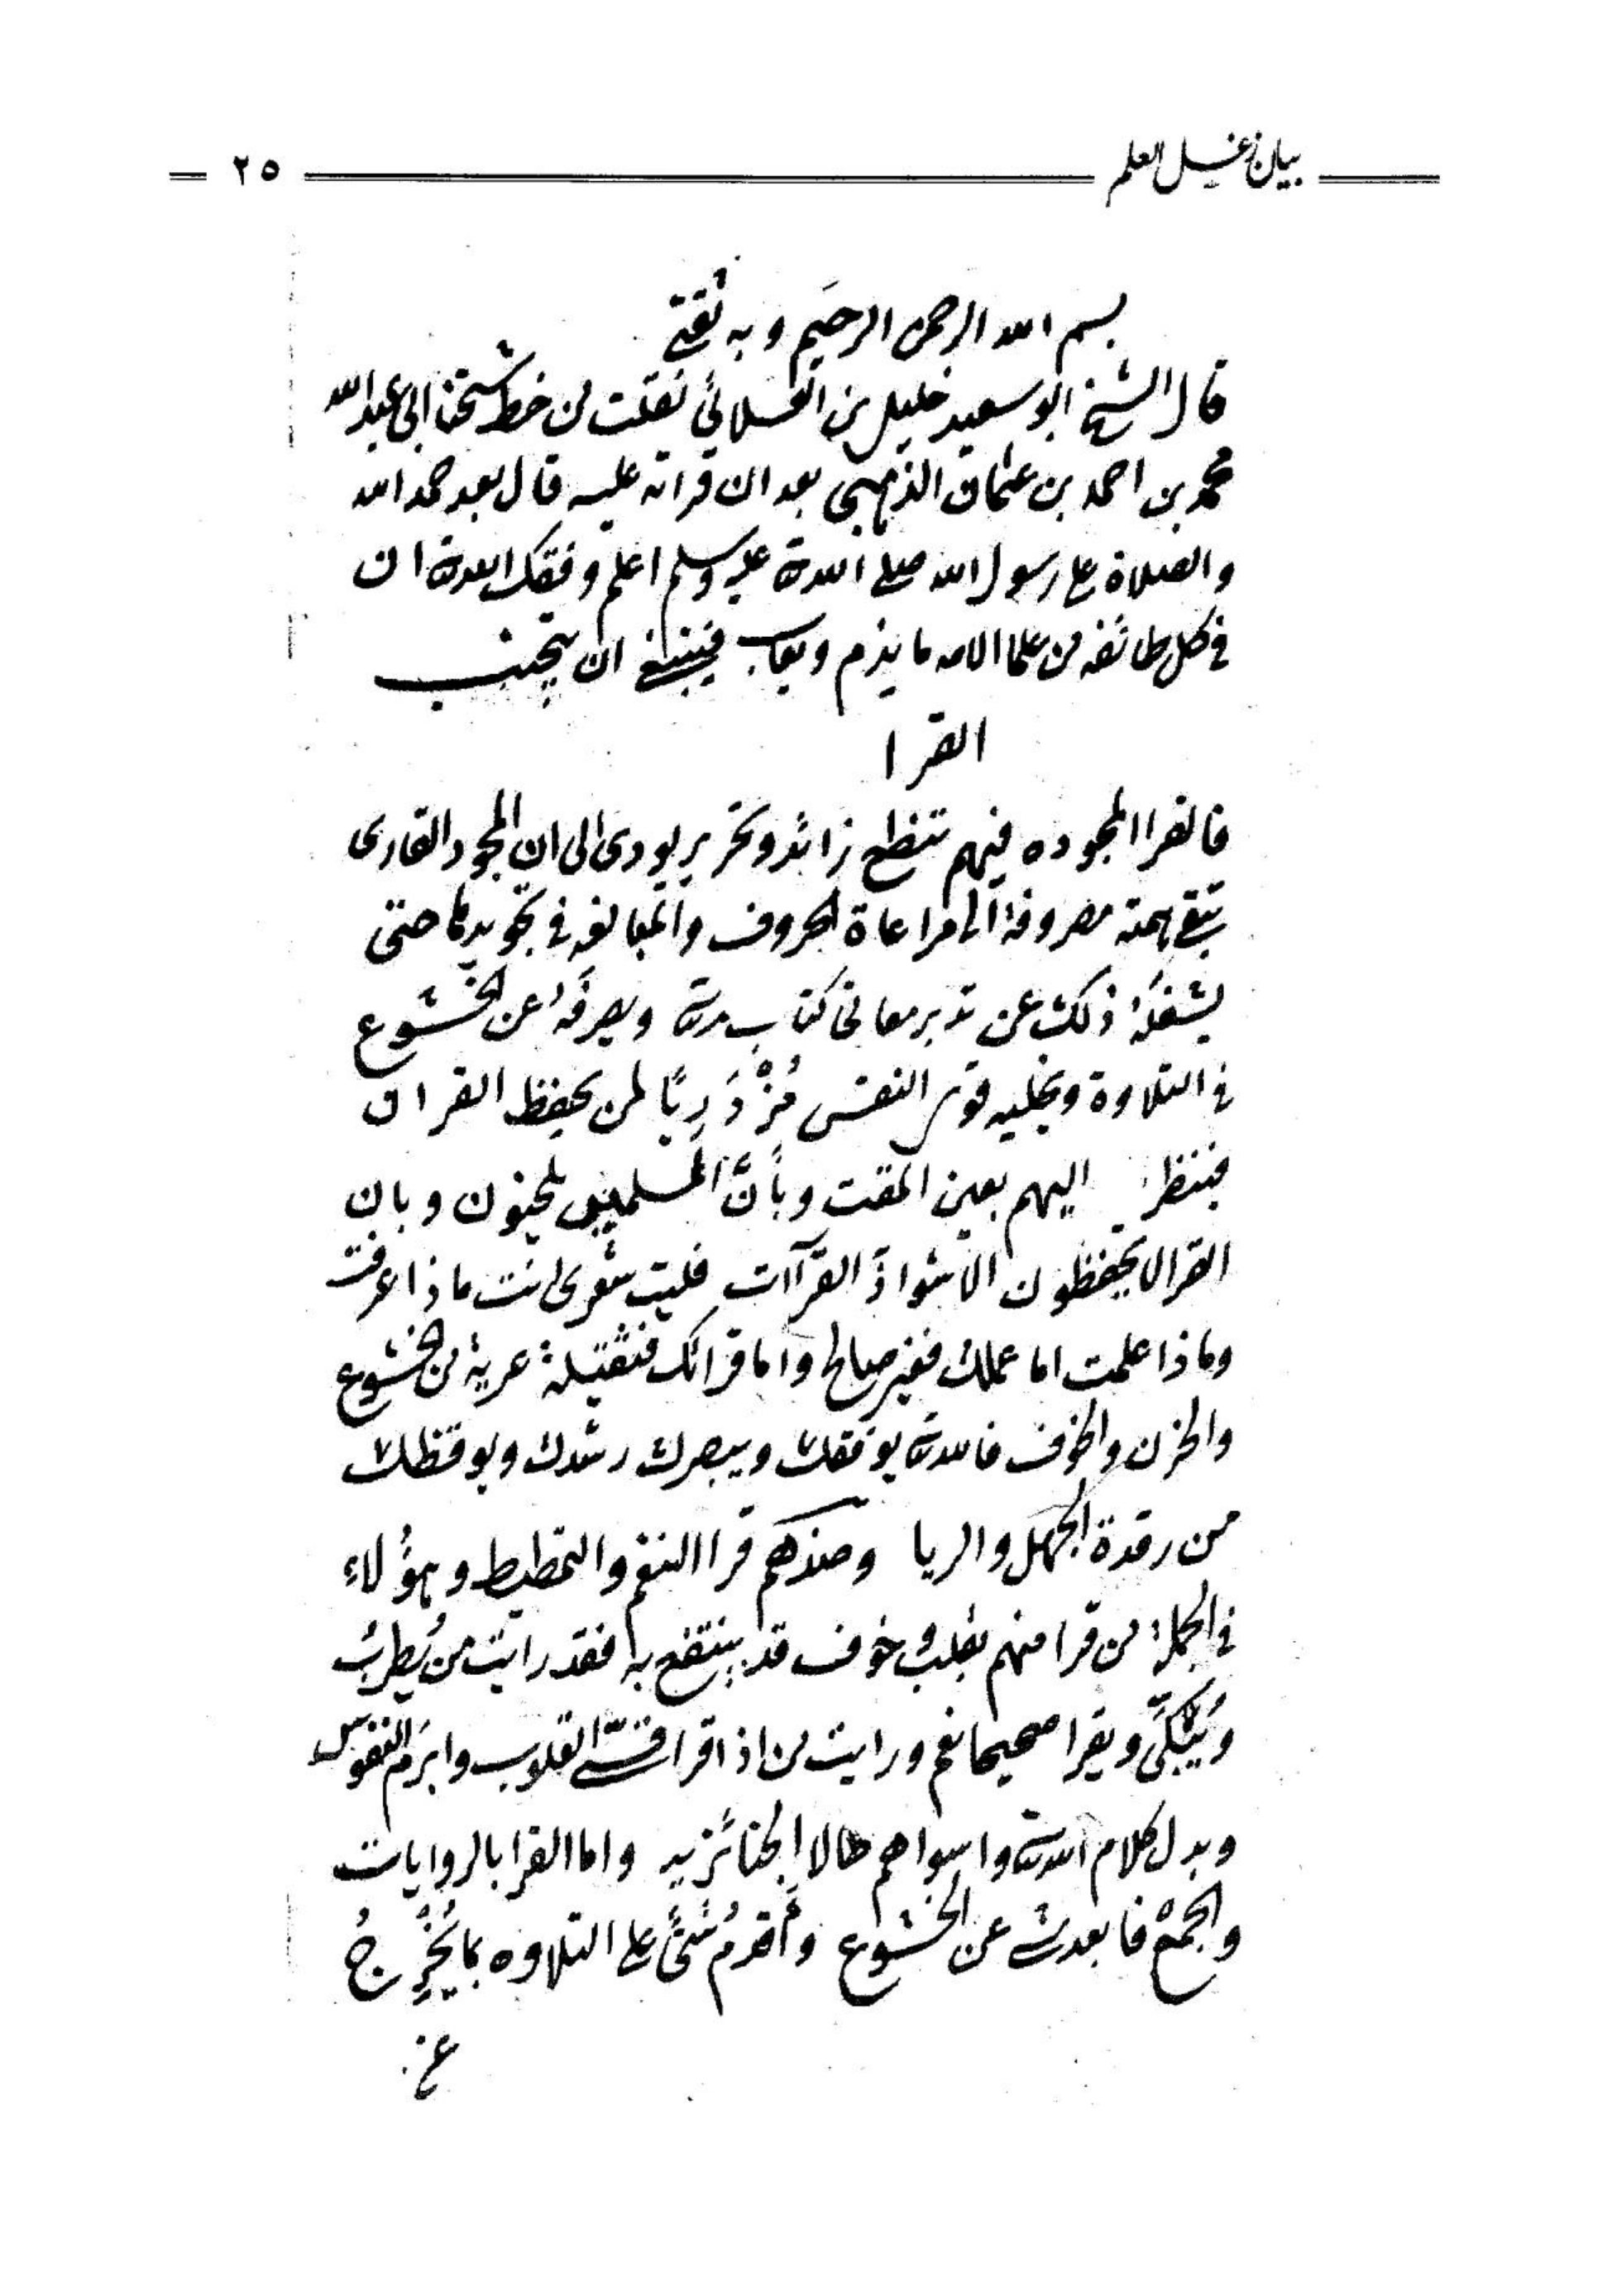 بيان زغل العلم
٢٥
بسم الله الرحمن الرحيم وبه ثقتي
قال الشيخ ابو سعيد خليل بن العلائي نقلت من خط شيخنا ابي عبد الله
محمد بن احمد بن عثمان الذهبي بعد ان قراته عليه قال بعد حمد الله
والصلاة على رسول الله صلى الله عليه وسلم اعلم وفقك الله ان
في كل طائفه من علما الامه ما يذم ويعاب فينبغي ان يتجنب
القرا
فالقرا المجوده فيهم تنطع زائد وتحرير يودي الى ان المجود القارى
تبقى همته مصروفة الى مراعاة الحروف والمبالغه في تجويدها حتى
يشغله ذلك عن تدبر معاني كتاب الله ويصرفه عن الخشوع
في التلاوة ويخليه قوي النفس مُزْدَرِيًا لمن يحفظ القران
فينظر اليهم بعين المقت وبأنَّ المسلمين يلحنون وبان
القرا لا يحفظون الا شواذ القرآات فليت شعري انت ماذا عرفت
وماذا علمت اما عملك فغير صالح واما قراتك فثقيلة عرية من الخشوع
والحزن والخوف فالله يوفقك ويبصرك رشدك ويوقظك
من رقدة الجهل والريا وضدهم قرا النغم والتمطيط وهؤلاء
في الجملة من قرا منهم بقلب وخوف قد ينتفع به فقد رايت من يُطرب
ويُبكّي ويقرا صحيحا نعم ورايت من اذا قرا قسّى القلوب وابرَم النفوس
وبدل كلام الله واسواهم حالا الجنائزيه واما القرا بالروايات
والجمع فابعد شي عن الخشوع وأقدمُ شئ على التلاوه بما يُخْرِجُ
عن